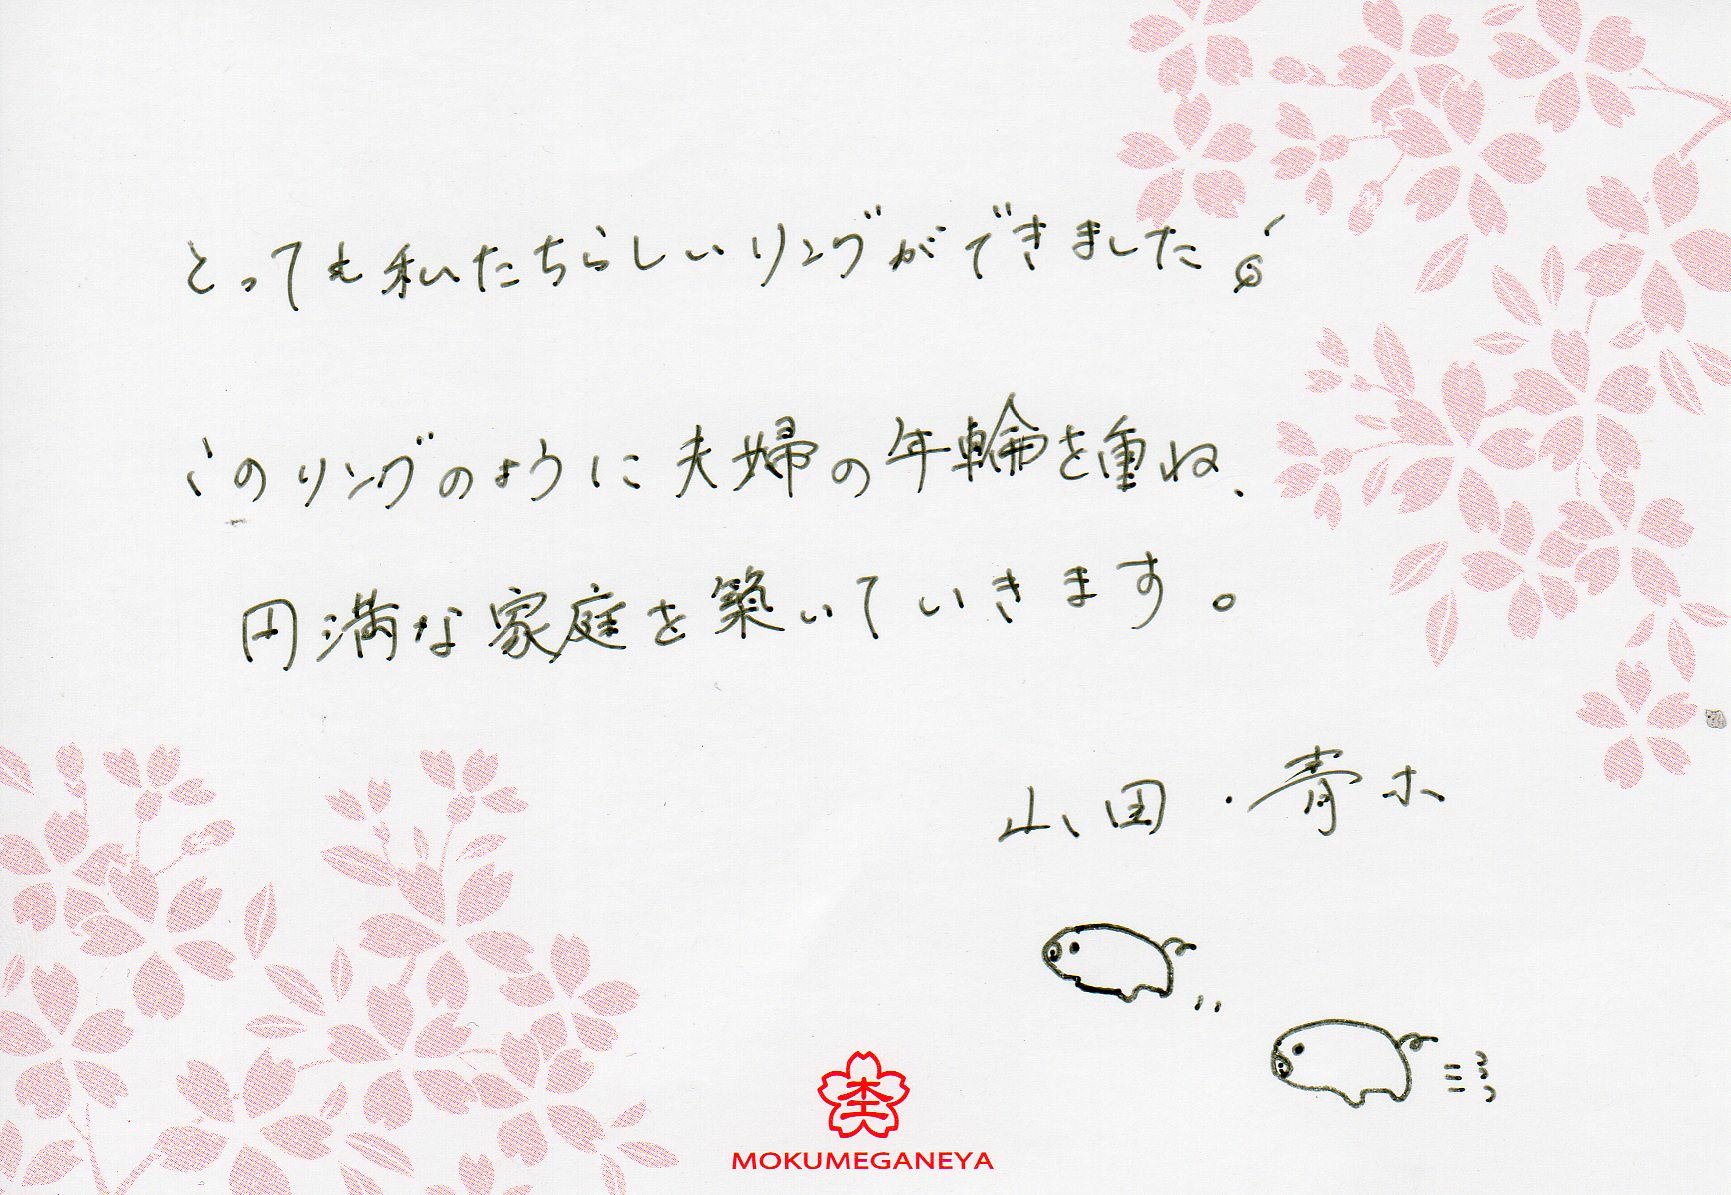 とっても私たちらしいリングができました!
このリングのように夫婦の年輪を重ね、
円満な家庭を築いていきます。
山田・青木
杢
MOKUMEGANEYA